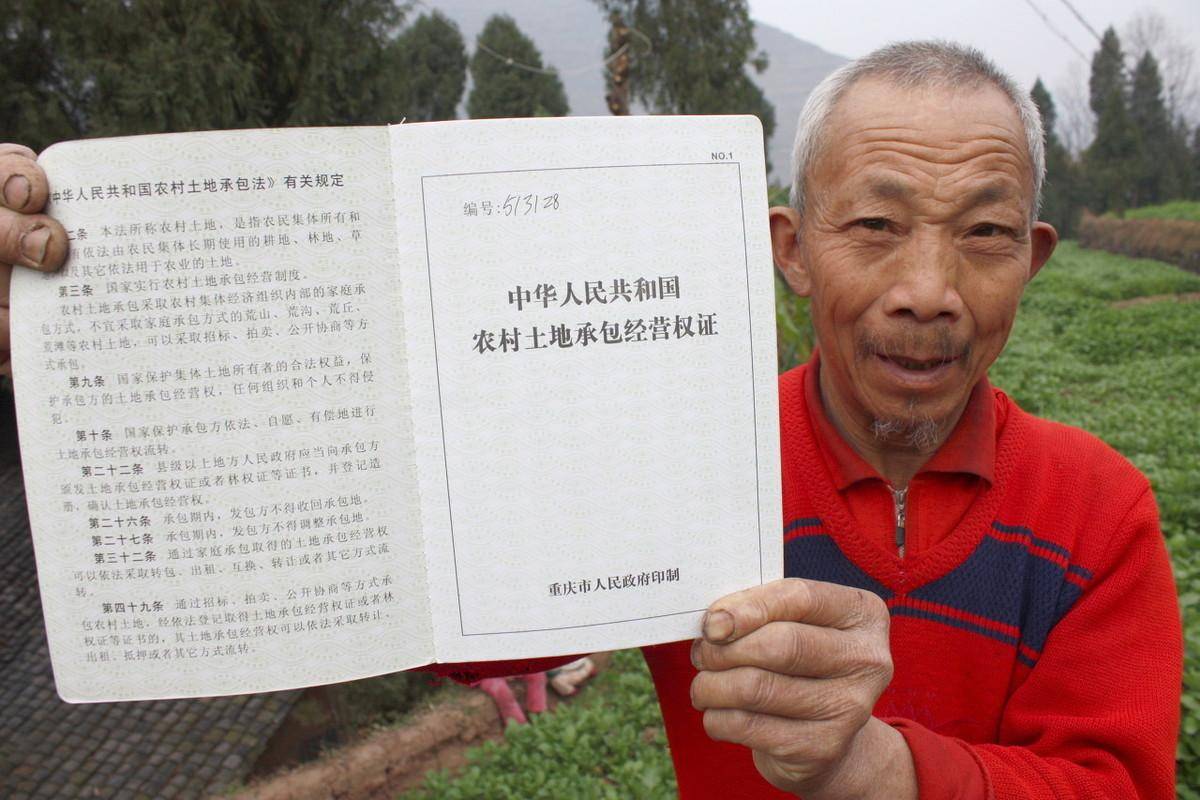 中华人民共和国农村土地承包法》有关规定
二条 本法所称农村土地，是指农民集体所有和
有依法由农民集体长期使用的耕地、林地、草
及其它依法用于农业的土地。
第三条 国家实行农村土地承包经营制度。
农村土地承包采取农村集体经济组织内部的家庭承
包方式，不宜采取家庭承包方式的荒山、荒沟、荒丘、
荒滩等农村土地，可以采取招标、拍卖、公开协商等方
式承包。
第九条 国家保护集体土地所有者的合法权益，保
护承包方的土地承包经营权，任何组织和个人不得侵
犯。
第十条 国家保护承包方依法、自愿、有偿地进行
土地承包经营权流转。
第二十二条 县级以上地方人民政府应当向承包方
颁发土地承包经营权证或者林权证等证书，并登记造
册，确认土地承包经营权。
第二十六条 承包期内，发包方不得收回承包地。
第二十七条 承包期内，发包方不得调整承包地。
第三十二条 通过家庭承包取得的土地承包经营权
可以依法采取转包、出租、互换、转让或者其它方式流
转。
第四十九条 通过招标、拍卖、公开协商等方式承
包农村土地，经依法登记取得土地承包经营权证或者林
权证等证书的，其土地承包经营权可以依法采取转让、
出租、抵押或者其它方式流转。
NO.1
编号:513128
中华人民共和国
农村土地承包经营权证
重庆市人民政府印制